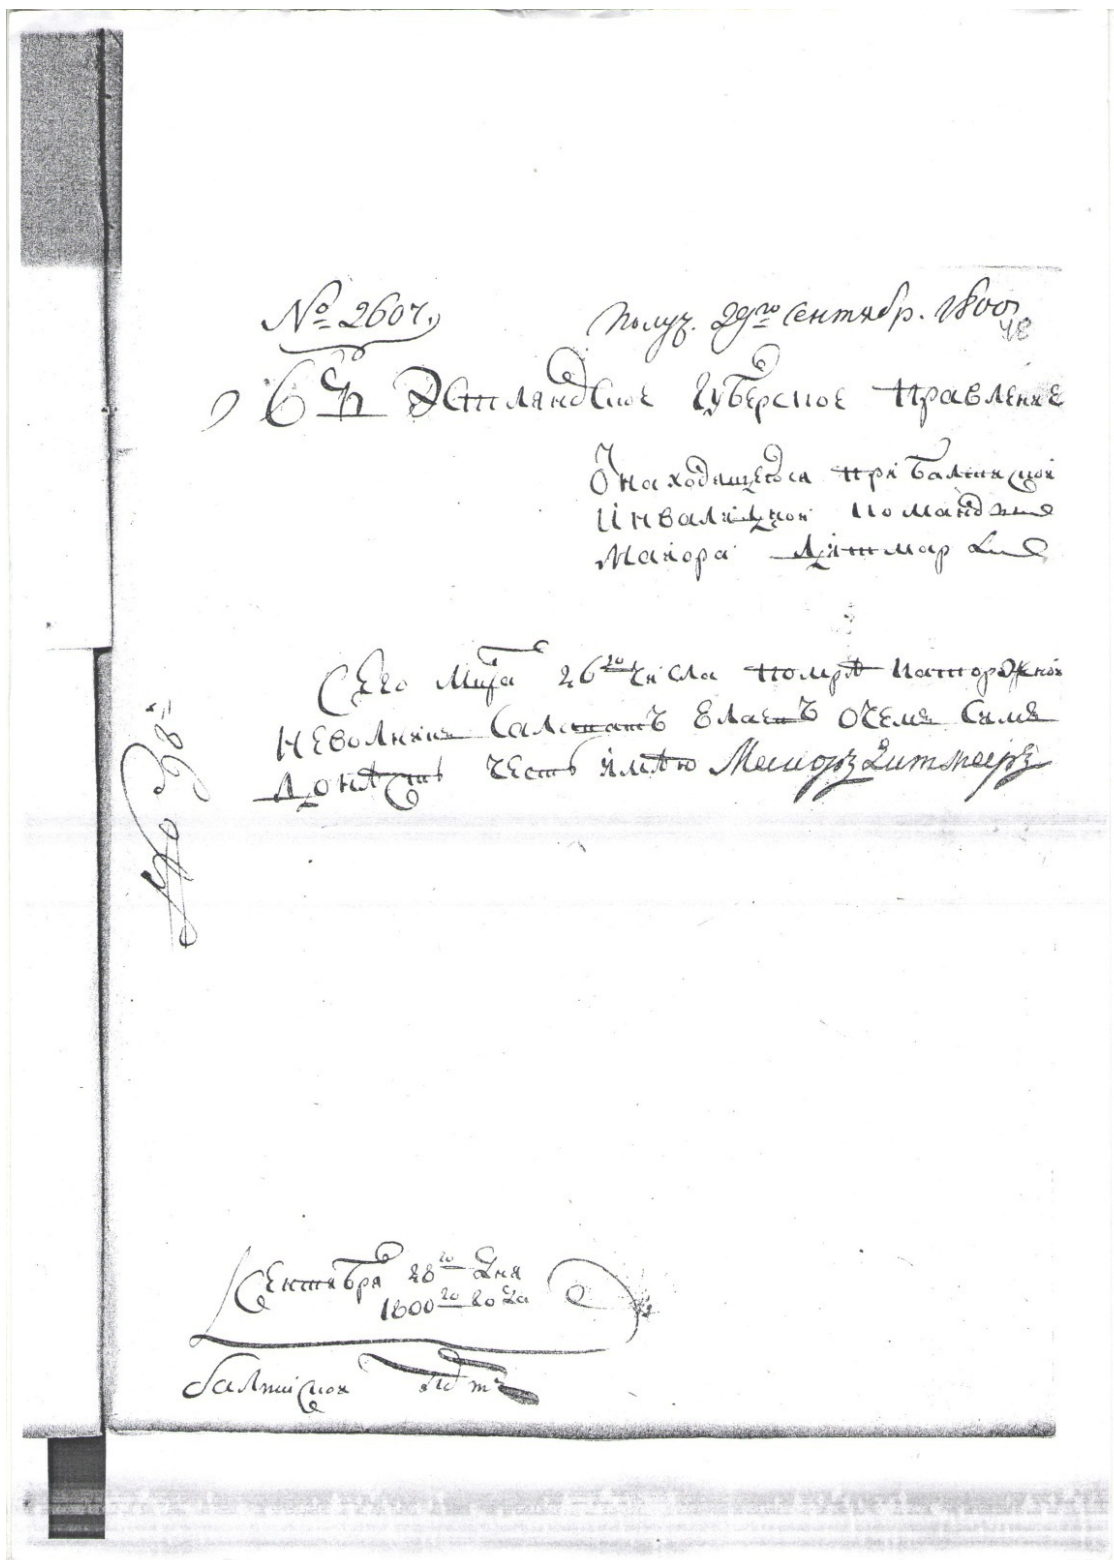 № 2604,
Получ. 29го Сентябр. 1800
48
Въ Эстляндское Губерское правление
находящегося при балтиской
инвалидной команде
Маиора Дитмар
Сего мца 26го числа помре каторжной
неволник Салаватъ Елаевъ о чемъ симъ
донесть честь имею Маиоръ Дитмаръ
No 98
Сентября 28го дня
1800го года
балтиской